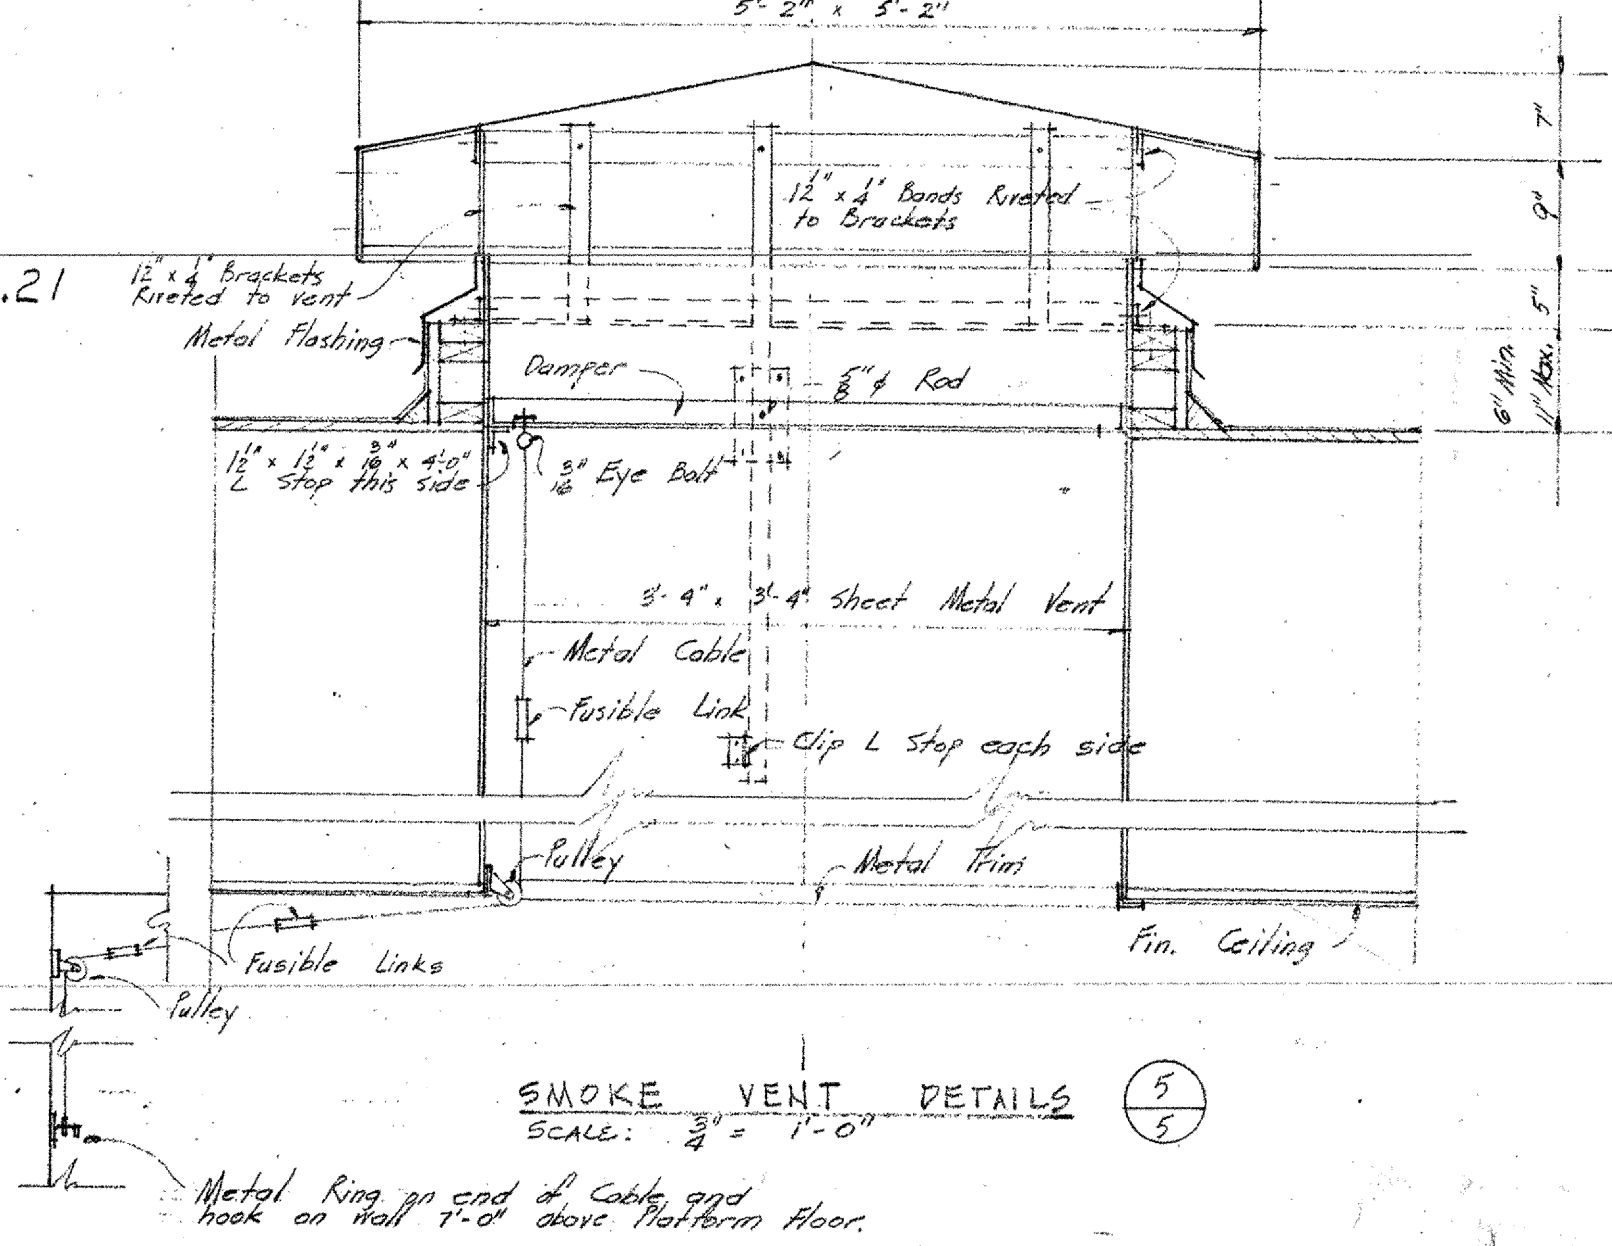 5'-2" x 5'-2"
7"
9"
5"
6" Min.
11" Max.
1½" x ¼" Bands Riveted
to Brackets
.21
1½" x ¼" Brackets
Riveted to vent
Metal Flashing
Damper
⅝" ϕ Rod
1½" x 1½" x 3/16" x 4'-0"
L Stop this side
3/16" Eye Bolt
3'-4" x 3'-4" Sheet Metal Vent
Metal Cable
Fusible Link
Clip L Stop each side
Pulley
Metal Trim
Fin. Ceiling
Fusible Links
Pulley
SMOKE VENT DETAILS
SCALE: ¾" = 1'-0"
5
5
Metal Ring on end of Cable and
hook on wall 7'-0" above Platform Floor.